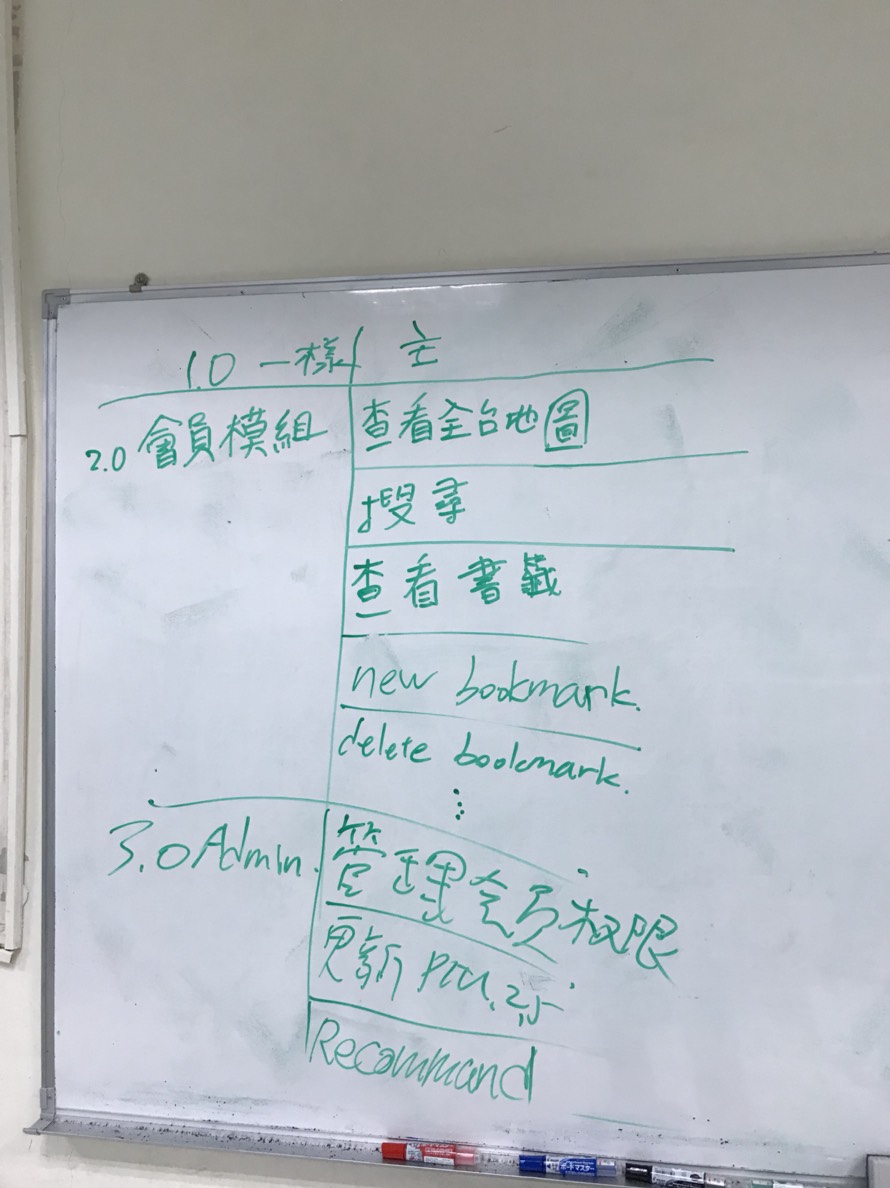 1.0 一樣 主
2.0 會員模組 查看全台地圖
搜尋
查看書籤
new bookmark.
delete bookmark.
⋮
3.0 Admin. 管理会员权限
更新 PM 2.5
Recommand
ボードマスター